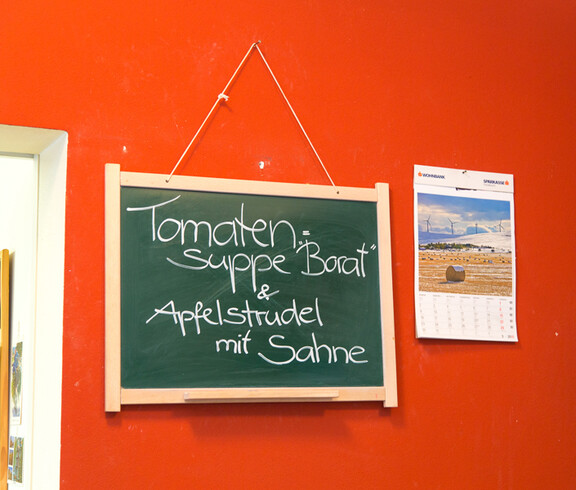 Tomaten=
suppe "Borat"
&
Apfelstrudel
mit Sahne
WOHNBANK
SPARKASSE